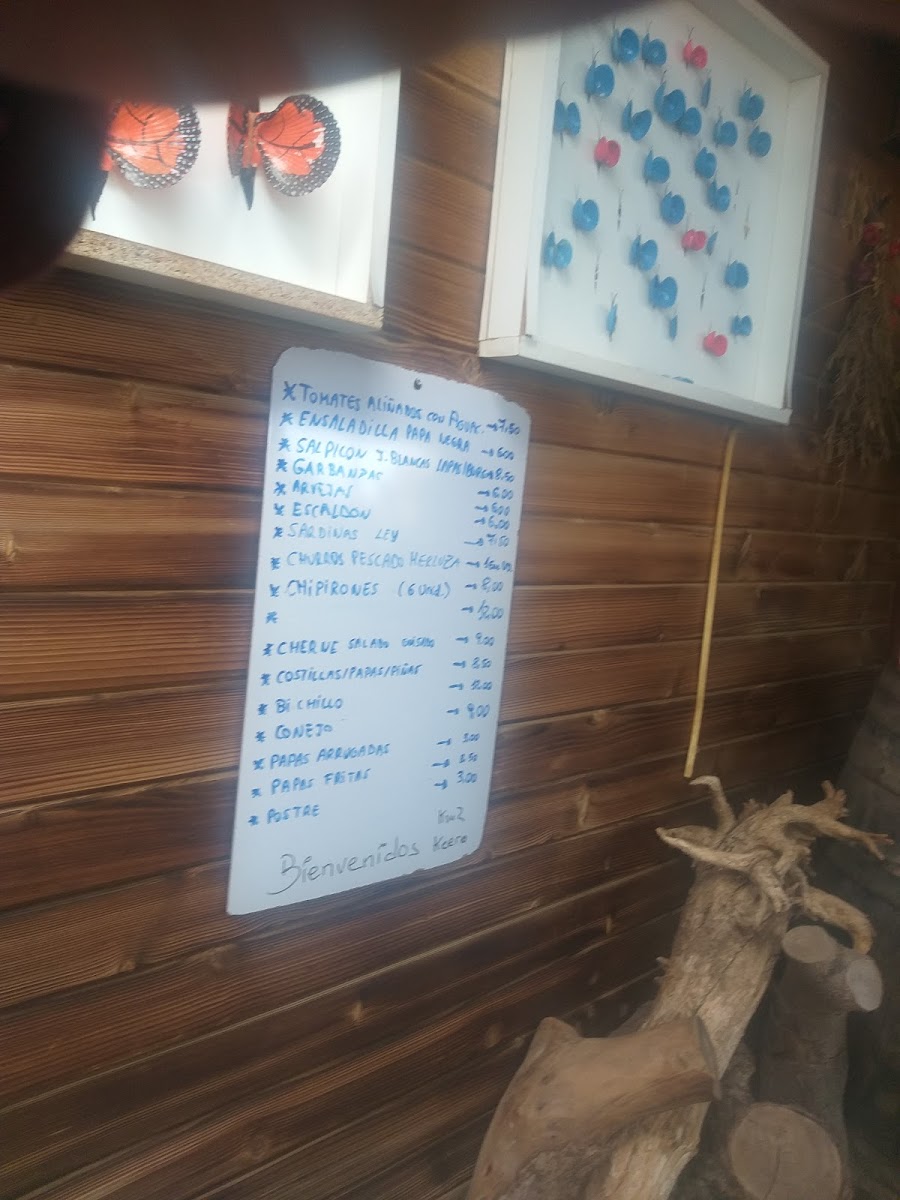 * TOMATES ALIÑADOS CON AGUAC. → 7,50
* ENSALADILLA PAPA NEGRA → 6,00
* SALPICON J. BLANCAS LAPAS/BURG → 8,50
* GARBANZAS → 6,00
* ARVEJAS → 6,00
* ESCALDON → 6,00
* SARDINAS LEY → 7,50
* CHURROS PESCADO MERLUZA →
* CHIPIRONES (6 Unid.) → 8,00
* → 12,00
* CHERNE SALADO GUISADO → 9,00
* COSTILLAS/PAPAS/PIÑAS → 8,50
* BICHILLO → 12,00
* CONEJO → 9,00
* PAPAS ARRUGADAS → 3,00
* PAPAS FRITAS → 3,50
* POSTRE → 3,00
Bienvenidos